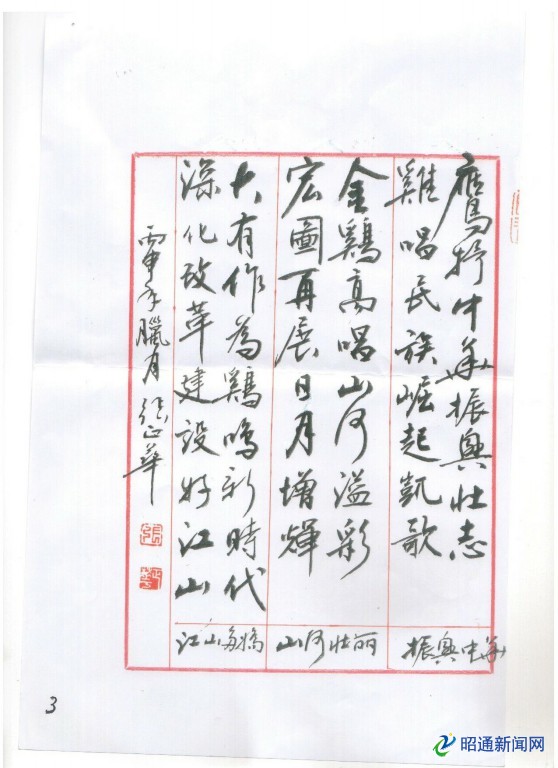 鹰抒中华振兴壮志
雞唱民族崛起凯歌
振興中华
金鷄高唱山河溢彩
宏圖再展日月增輝
山河壮丽
大有作為鷄鳴新時代
深化改革建設好江山
江山多嬌
丙申年臘月 张正華
3
昭通新闻网